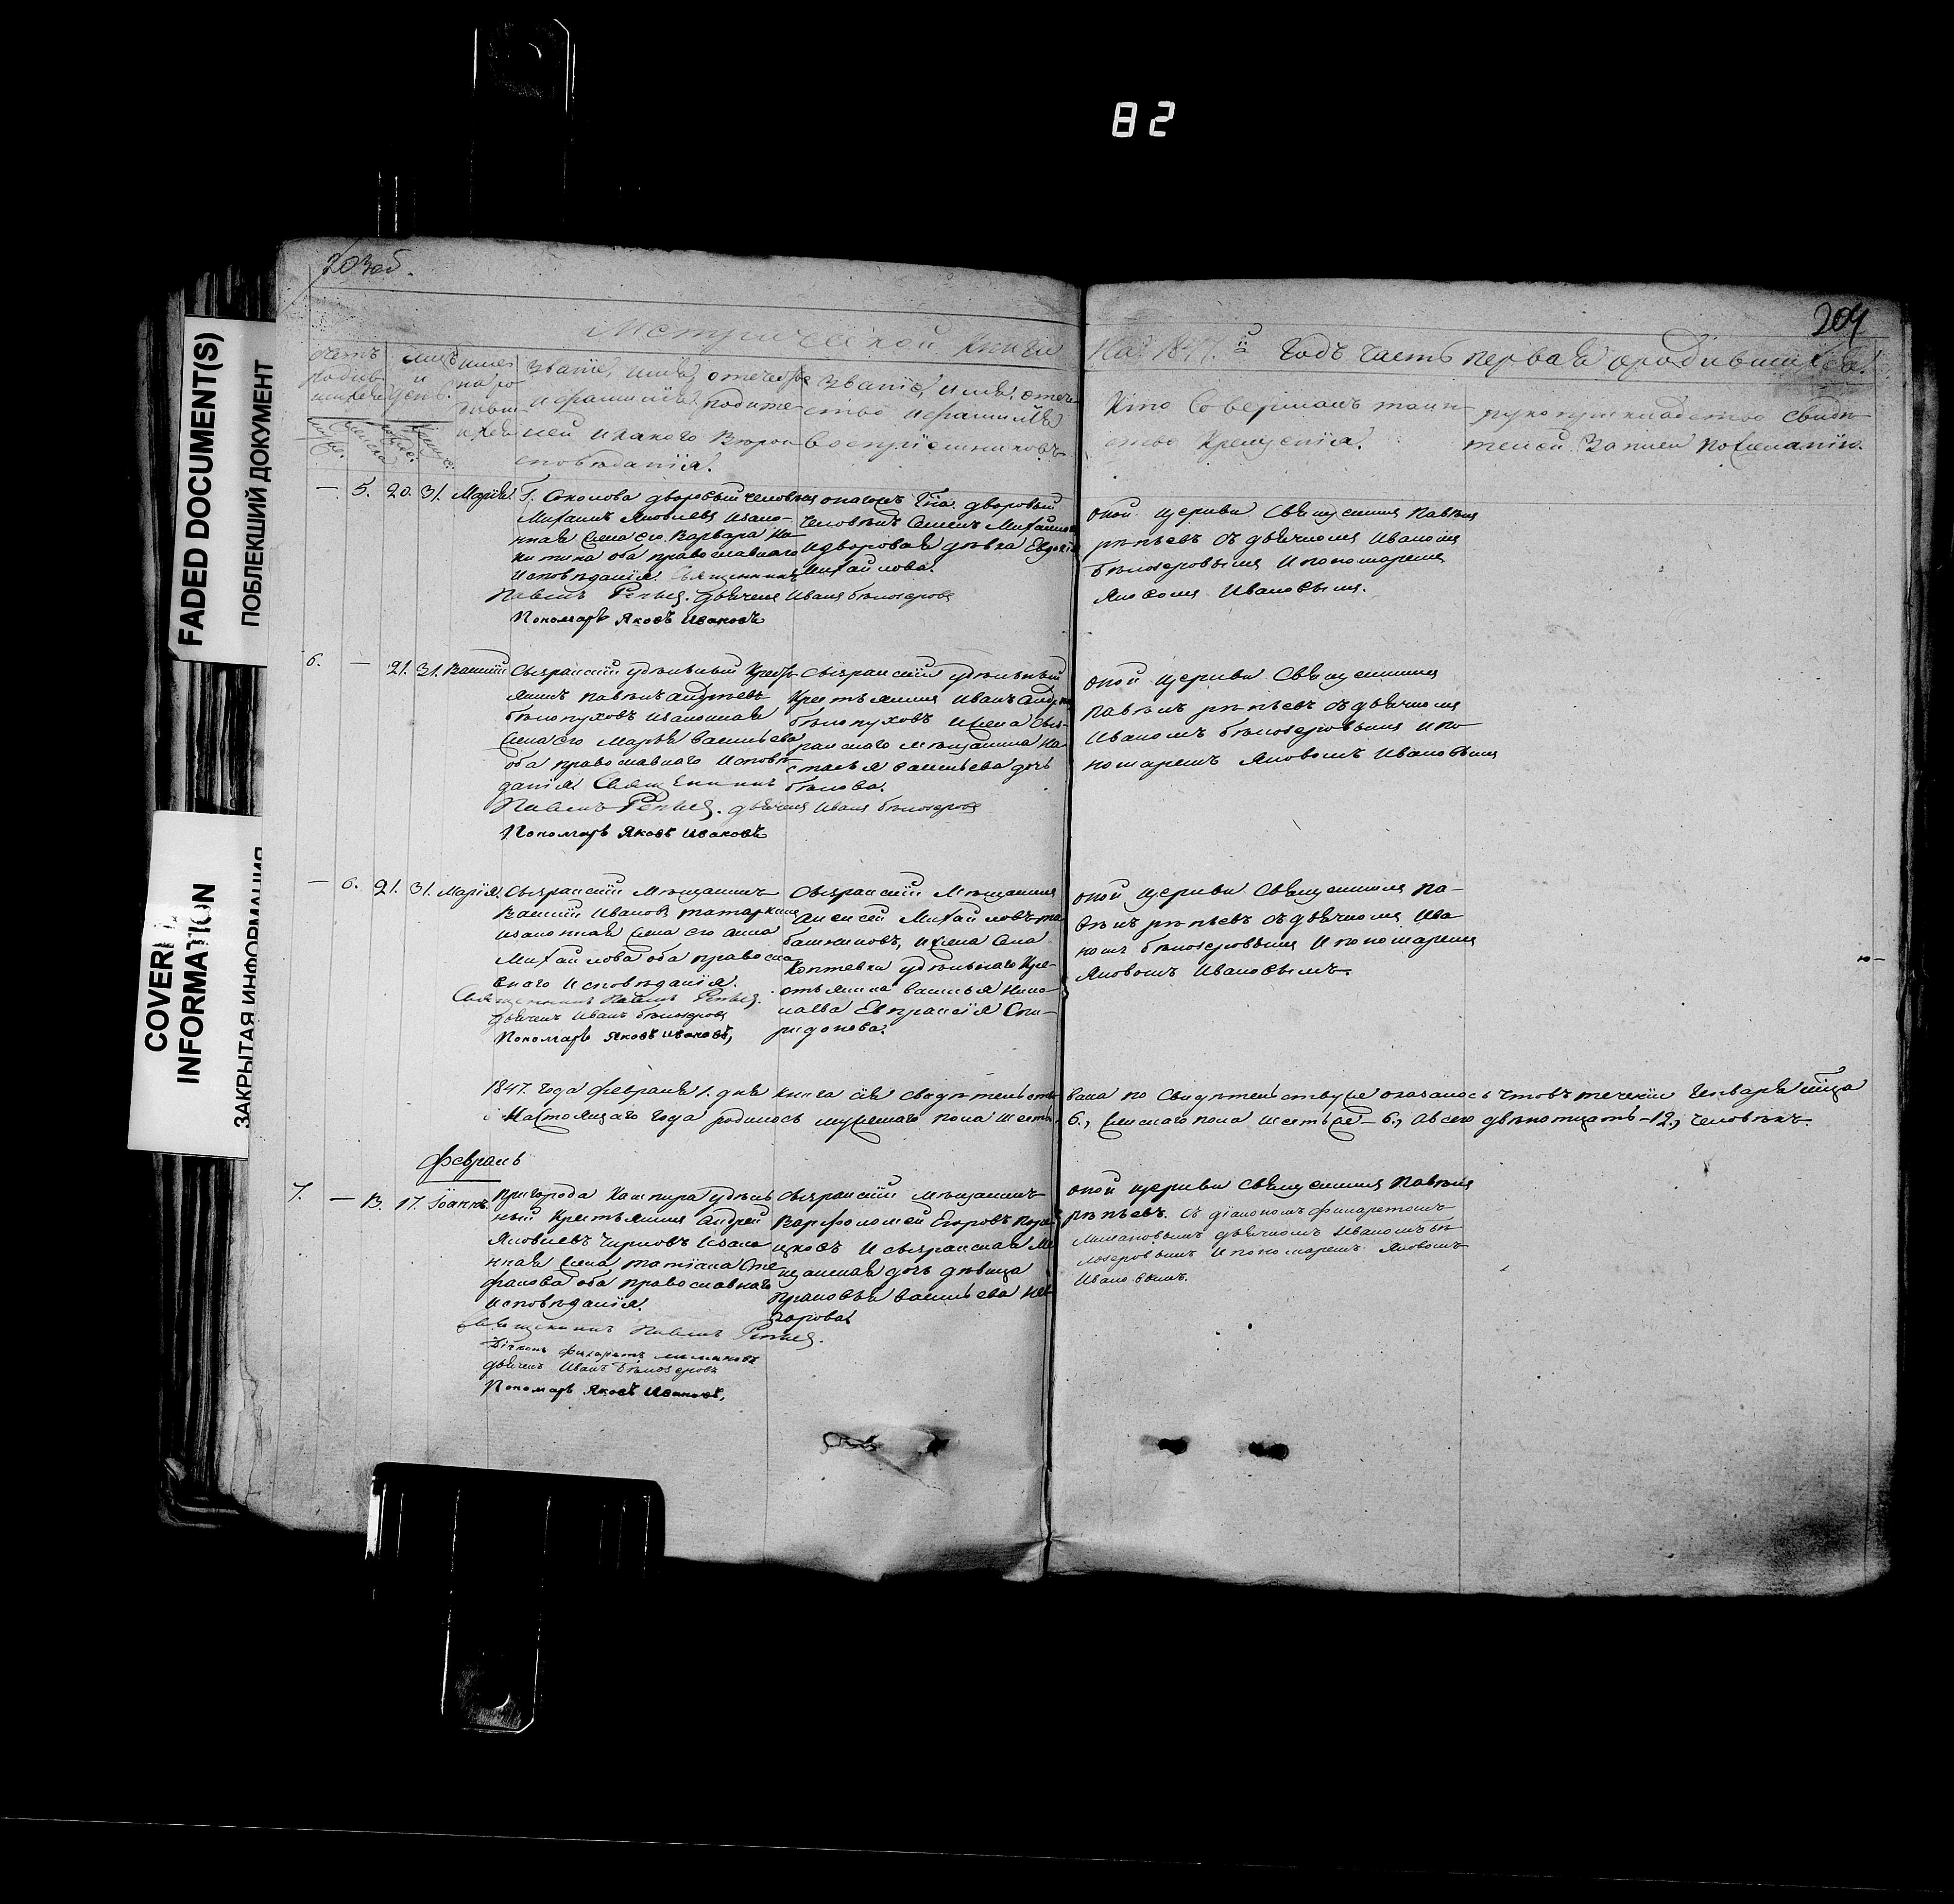 82
FADED DOCUMENT(S)
ПОБЛЕКШИЙ ДОКУМЕНТ
COVERED
INFORMATION
ЗАКРЫТАЯ ИНФОРМАЦИЯ
203 об.
204
Метрической книги
На 1847.й Годъ Часть первая о родившихся.
Имена родившихся
Званіе, имя, отечество
и фамилія родите-
лей и какого Вероисповѣданія.
Званіе, имя, отече-
ство и фамилія
воспріемниковъ
Кто Совершалъ таин-
ство Крещенія.
рукоприкладство свидѣ-
телей записи по желанію.
— 5. 20. 31. Марія.
Г. Соколова дворовый человѣкъ
Михаилъ Яковлевъ и зако-
нная жена его Варвара Ни-
китина оба православнаго
исповѣданія. Священникъ
Павелъ Репьев. дьячекъ Иванъ Бѣлозеровъ
Пономарь Яковъ Ивановъ
дворовый
человѣкъ Семенъ Михайлов
и дворовая дѣвка Евдокія
Михайлова.
оной церкви Священникъ Павелъ
рѣпьевъ съ дьячкомъ Иваномъ
бѣлозеровымъ и пономаремъ
Яковомъ Ивановымъ.
6. — 21. 31. Василій
Сызранскій удѣльный Крестья-
янинъ Павелъ андреевъ
бѣлопуховъ и законная
жена его Марья васильева
оба православнаго исповѣ-
данія Священникъ
Павелъ Репьев. дьячекъ Иванъ Бѣлозеровъ
Пономарь Яковъ Ивановъ
Сызранскій удѣльный
Крестьянинъ Иванъ Андреев
бѣлопуховъ и жена Сыз-
ранскаго мѣщанина На-
стасья васильева дочь
бѣлова.
оной церкви Священникъ
Павелъ рѣпьевъ съ дьячкомъ
Иваномъ бѣлозеровымъ и по-
номаремъ Яковомъ Ивановымъ
— 6. 21. 31. Марія.
Сызранскій Мѣщанинъ
Василій Ивановъ татаркинъ
и законная жена его анна
Михайлова оба православ-
наго исповѣданія.
Священникъ Павелъ Репьев.
дьячекъ Иванъ Бѣлозеровъ
Пономарь Яковъ Ивановъ,
Сызранскій Мѣщанинъ
Алексей Михайловъ та-
башниковъ, и села
Коптевки удѣльнаго Кре-
стьянина василья Нико-
лаева Евпраксія Спи-
ридонова.
оной церкви Священникъ Па-
велъ рѣпьевъ съ дьячкомъ Ива-
номъ бѣлозеровымъ и пономаремъ
Яковомъ Ивановымъ.
1847. года февраля 1. дня книга сія свидѣтельство-
вана по Свидѣтельству же оказалось что въ теченіи Генваря мѣсяца
Настоящаго года родилось мужескаго пола шесть
6., женскаго пола шесть же — 6., а всего двѣнатцать — 12., человѣкъ.
февраль
7. — 13. 17. Іоаннъ.
Пригорода Кашпира удѣль-
ный Крестьянинъ Андрей
Яковлевъ Чирковъ и зако-
нная жена татіана Сте-
фанова оба православнаго
исповѣданія.
Священникъ Павелъ Репьев.
Діаконъ Филаретъ
дьячекъ Иванъ Бѣлозеровъ
Пономарь Яковъ Ивановъ,
Сызранскій мѣщанинъ
Варфоломей Егоровъ
и сызранская мѣ-
щанская дочь дѣвица
Прасковья васильева
оной церкви Священникъ Павелъ
рѣпьевъ. съ діакономъ филаретомъ
дьячкомъ Иваномъ бѣ-
лозеровымъ и пономаремъ Яковомъ
Ивановымъ.